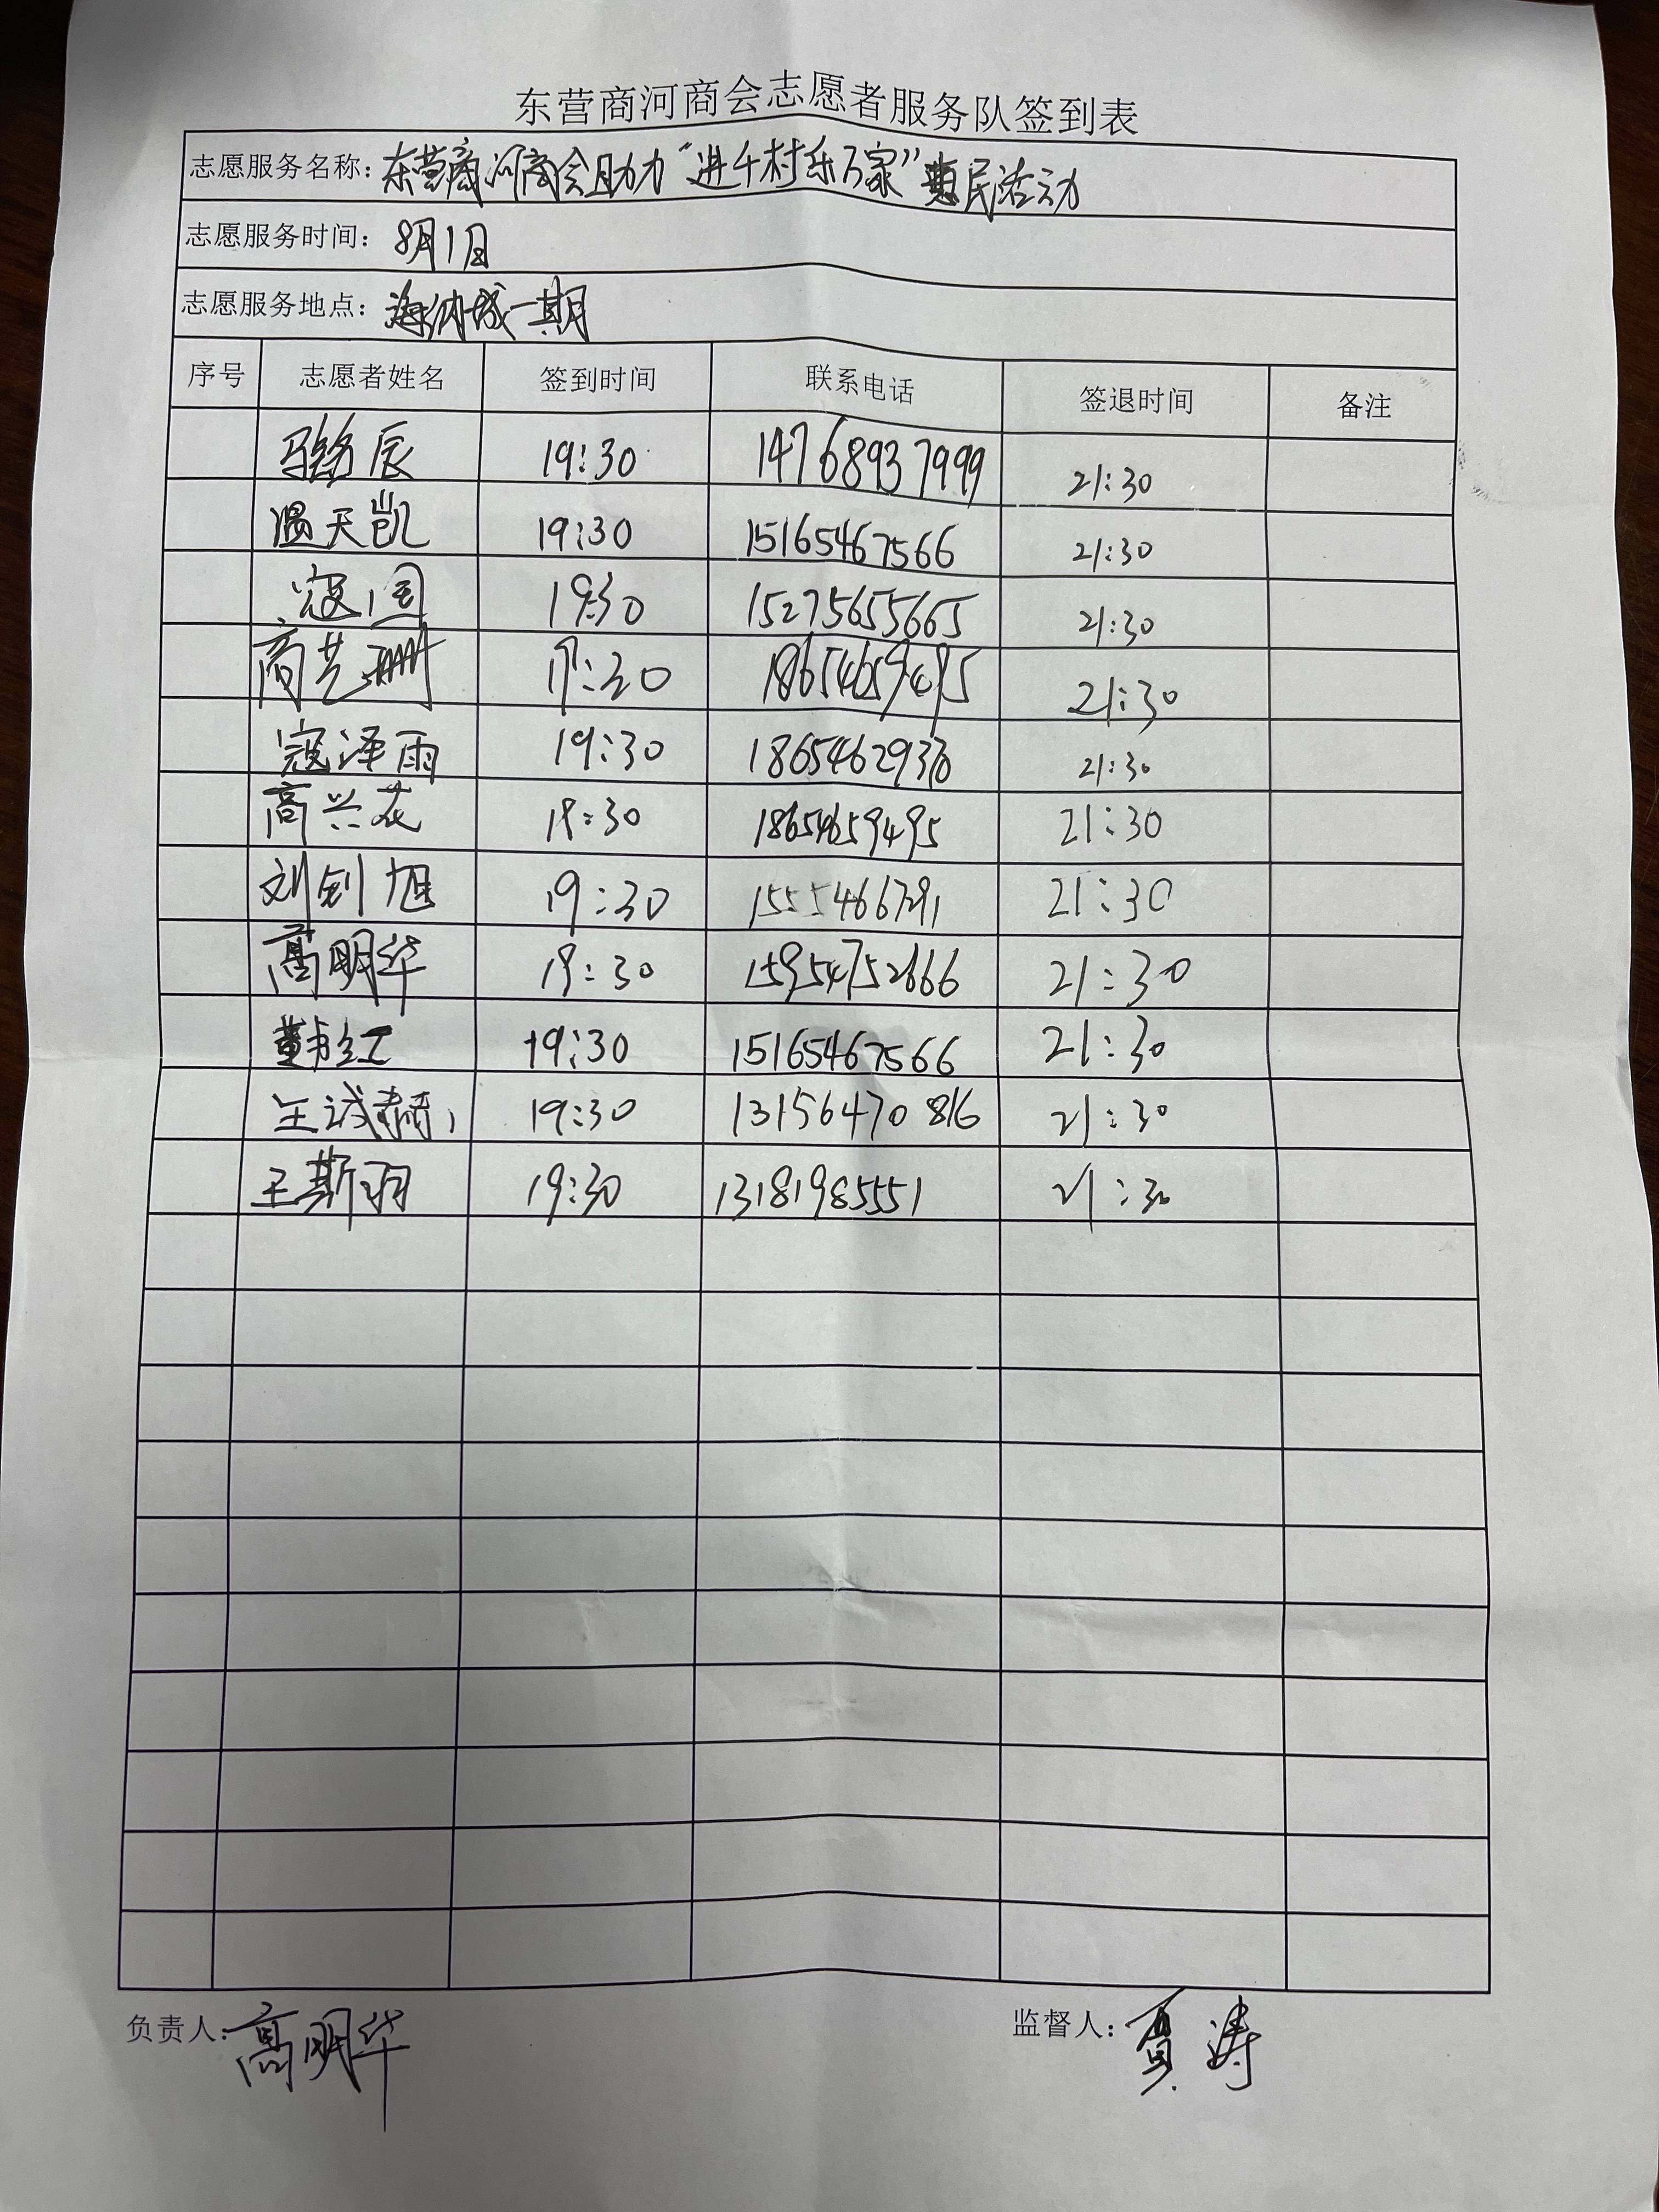 东营商河商会志愿者服务队签到表
志愿服务名称：东营商河商会助力“进千村乐万家”惠民活动
志愿服务时间：8月1日
志愿服务地点：海纳城一期
序号 志愿者姓名 签到时间 联系电话 签退时间 备注
马铭辰 19:30 14768937999 21:30
温天凯 19:30 15165467566 21:30
寇国 19:30 15275655665 21:30
商艺珊 19:30 18654659495 21:30
寇泽雨 19:30 21:30
高兴花 19:30 18654659495 21:30
刘钊旭 19:30 15554667291 21:30
高明华 19:30 15954752666 21:30
董红 19:30 15165467566 21:30
王诚 19:30 13156470816 21:30
王斯羽 19:30 13181985551 21:30
负责人：高明华 监督人：贾涛